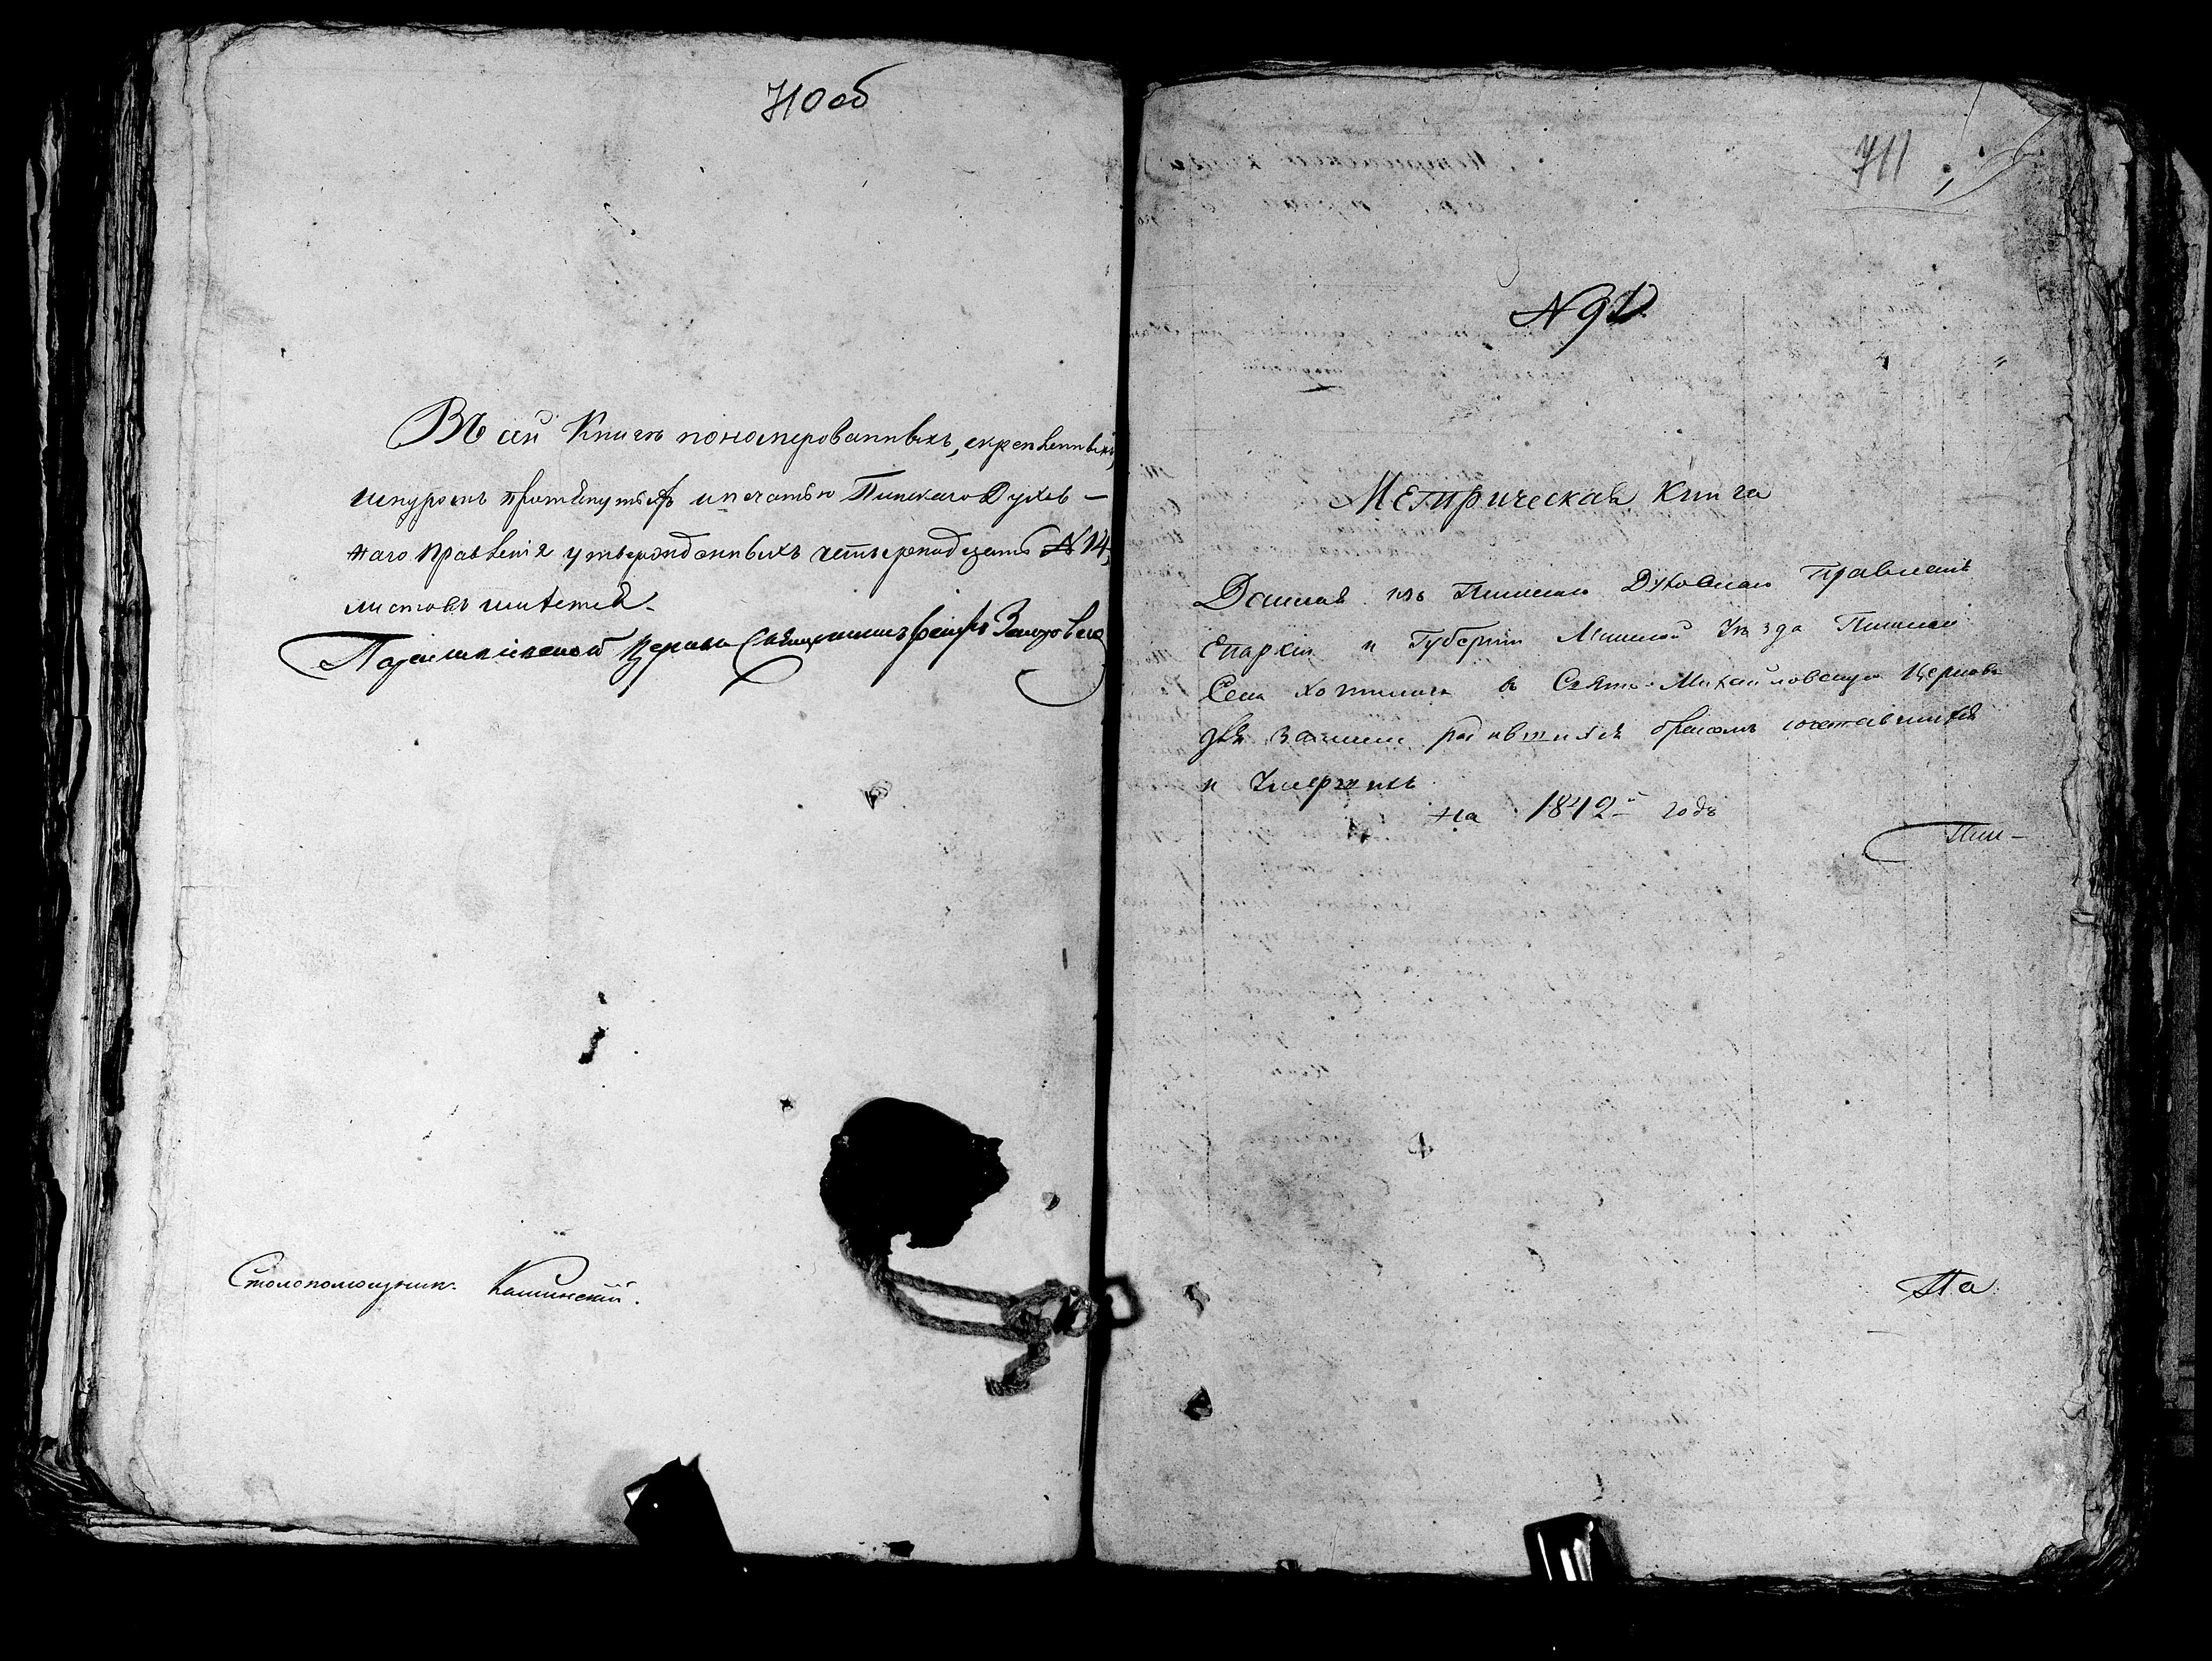 710об
Въ сей Книгѣ пономерованныхъ, скрепленныхъ,
шнуромъ протянутыхъ и печатью Пинскаго Духов-
наго Правленія утвержденныхъ четырнадцать N 14,
листовъ имѣется.
Парашкіевской Церкви Священникъ
Столопомощникъ Каминскій.
711
N 91
Метрическая Книга
Данная изъ Пинскаго Духовнаго Правленія
Епархіи и Губерніи Минской Уѣзда Пинскаго
Села Хотинича въ Свято-Михайловскую Церковь
для записи родившихся бракомъ сочетавшихся
и Умершихъ
на 1842й годъ
Пин-